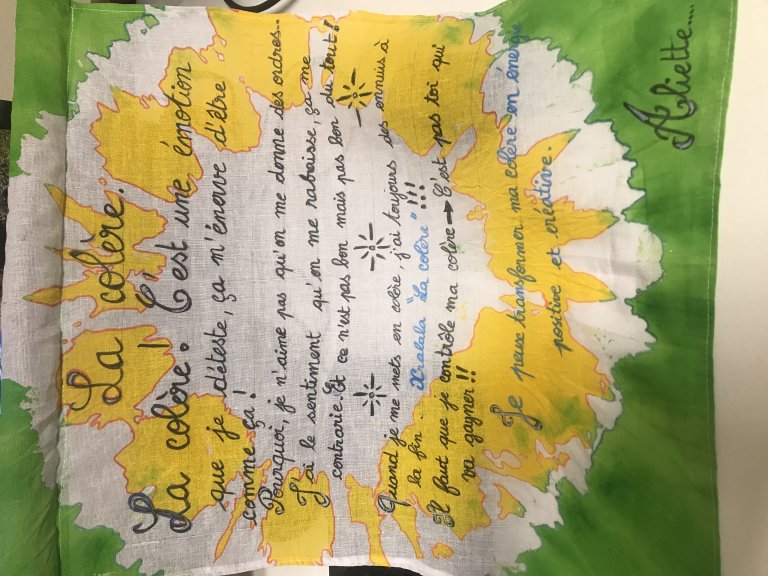 La colère.
La colère ! C'est une émotion
que je déteste, ça m'énerve d'être
comme ça !
Pourquoi, je n'aime pas qu'on me donne des ordres..
J'ai le sentiment qu'on me rabaisse, ça me
contrarie. Et ce n'est pas bon mais pas bon du tout !
Quand je me mets en colère, j'ai toujours des ennuis à
la fin. Xralala "La colère" !!!
Il faut que je contrôle ma colère → C'est pas toi qui
va gagner !!
Je peux transformer ma colère en énergie
positive et créative.
Aliette....